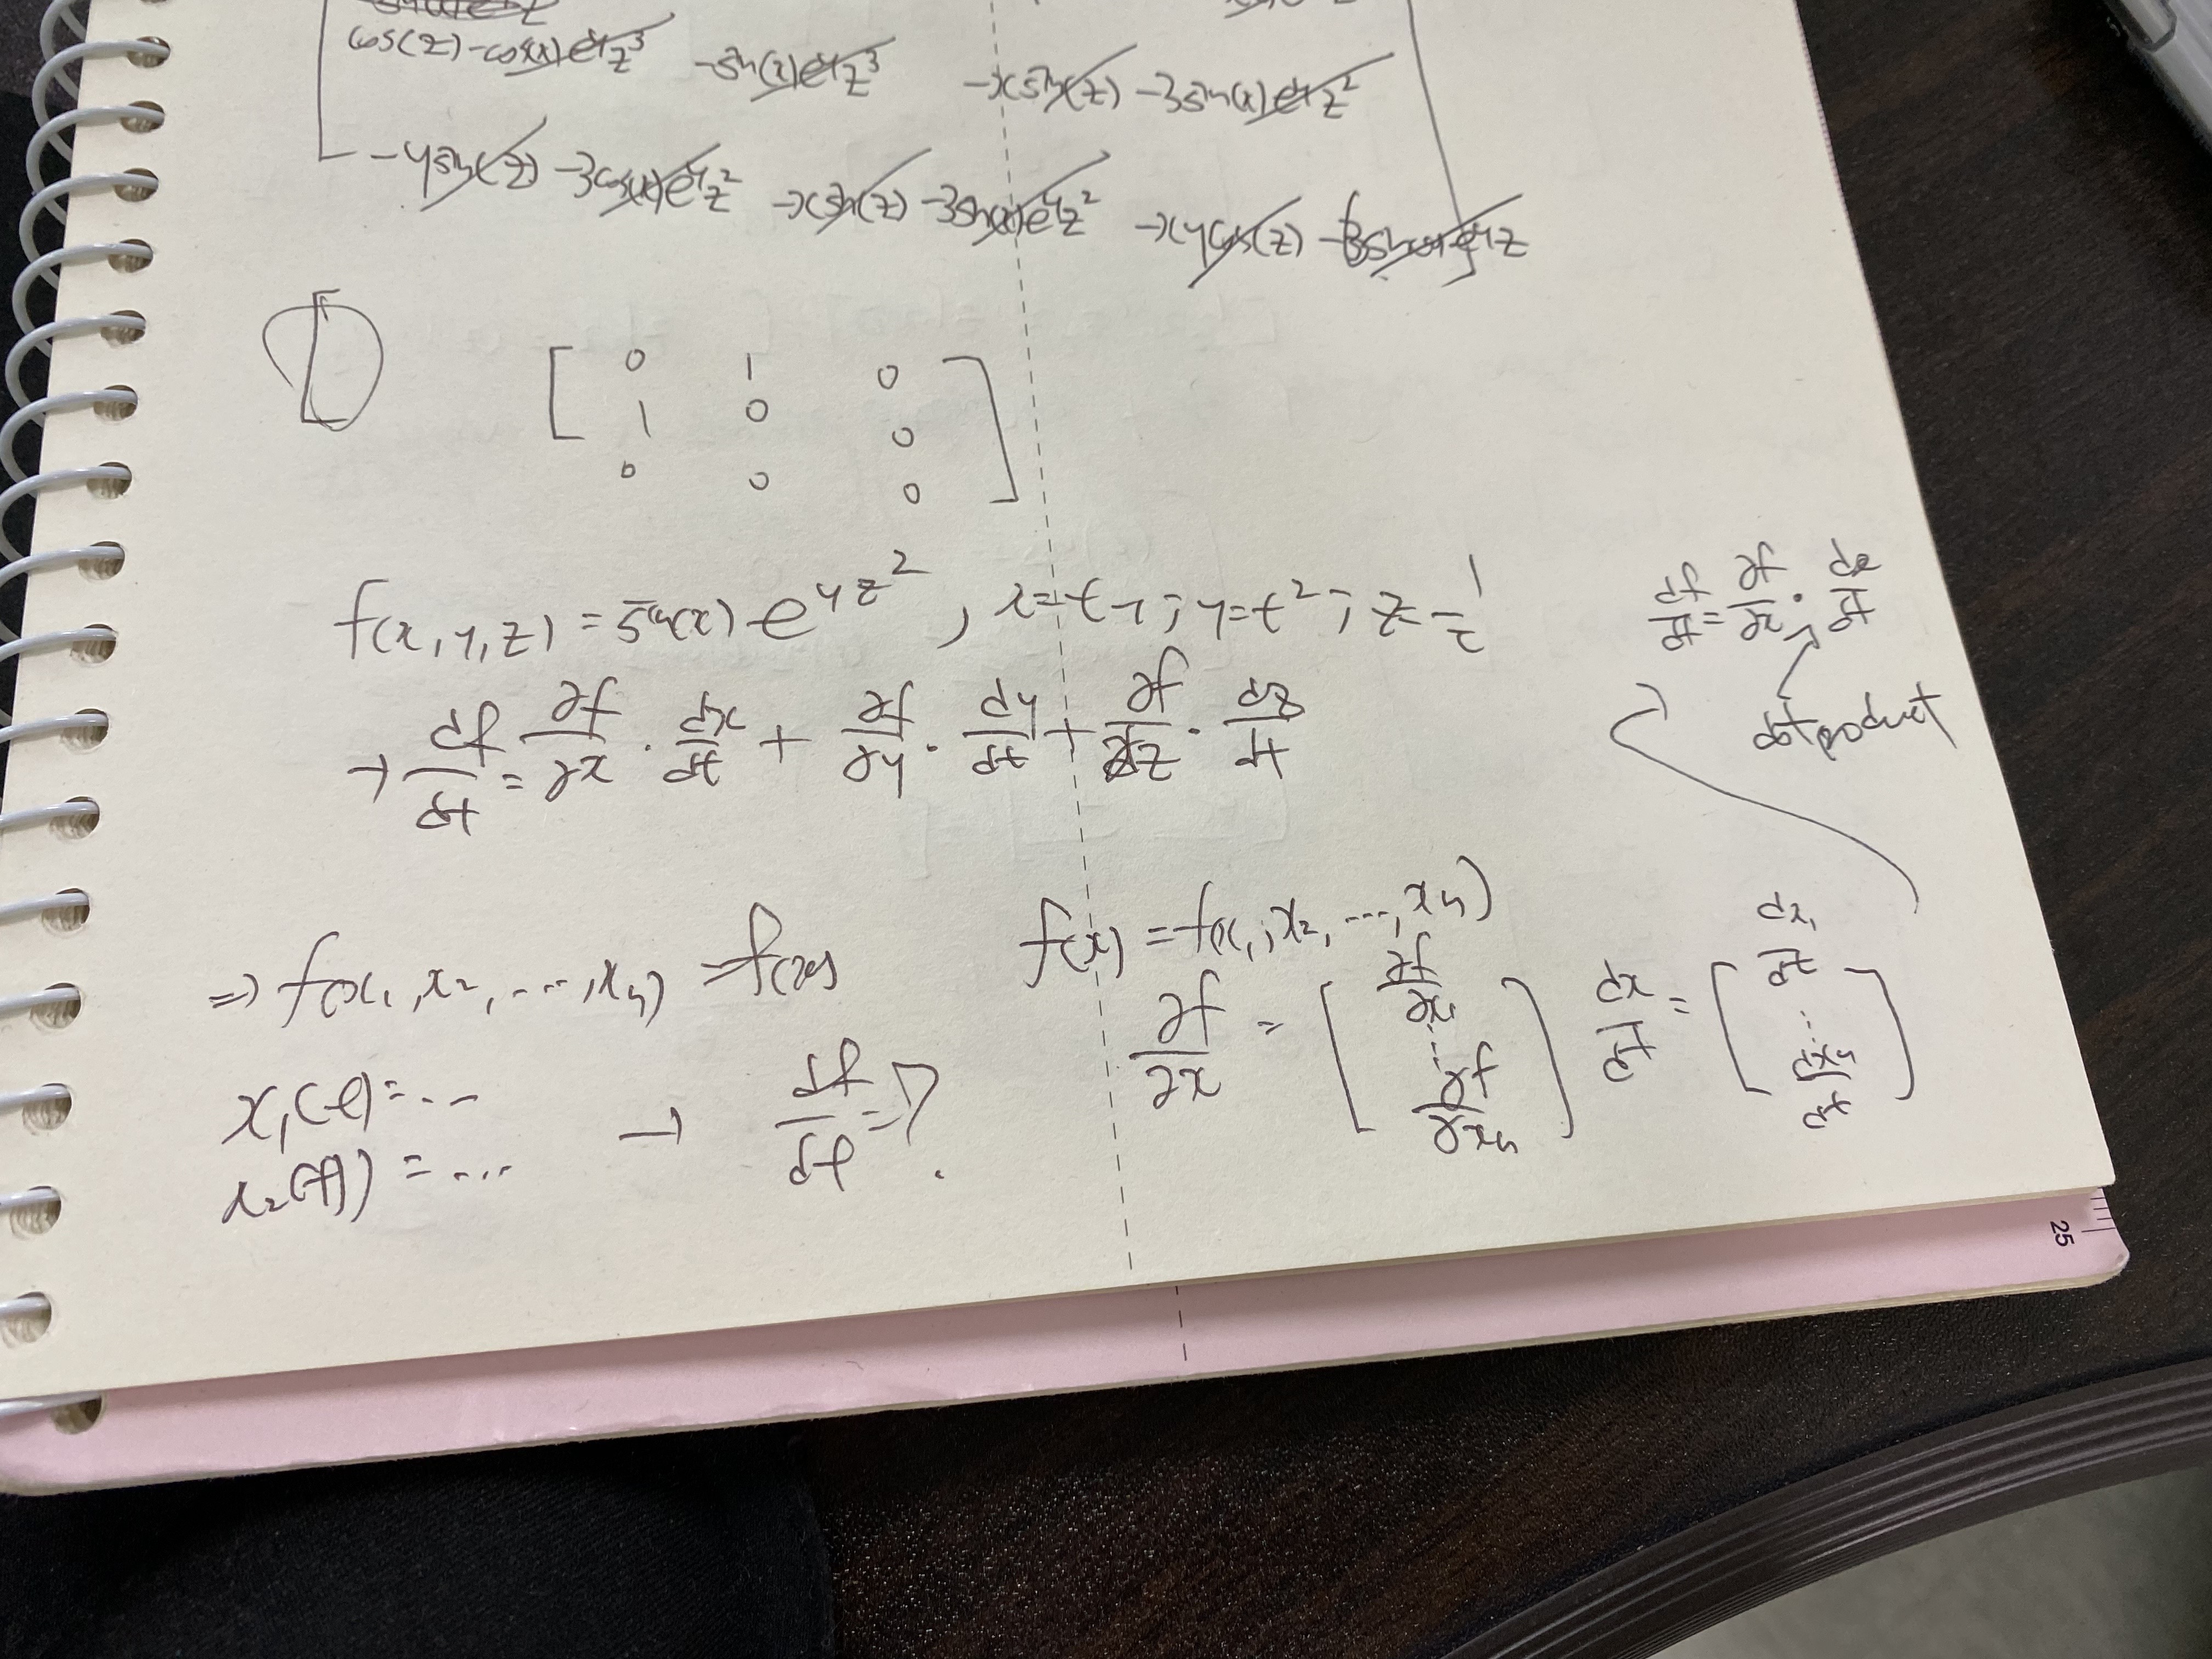 cos(z)-cos(x)e^y z^3 -sin(x)e^y z^3 -xsin(z)-3sin(x)e^y z^2
-ysin(z)-3cos(x)e^y z^2 -xsin(z)-3sin(x)e^y z^2 -xycos(z)-6sin(x)e^y z
[ 0 1 0
1 0 0
0 0 0 ]
f(x,y,z) = sin(x) e^{yz^2}, x=t-1; y=t^2; z=1/t
→ df/dt = ∂f/∂x · dx/dt + ∂f/∂y · dy/dt + ∂f/∂z · dz/dt
df/dt = ∂f/∂x · dx/dt
dot product
⇒ f(x₁,x₂,...,xₙ) = f(x)
x₁(t)=...
x₂(t)=...
→ df/dt = ?
f(x) = f(x₁,x₂,...,xₙ)
∂f/∂x = [ ∂f/∂x₁ ⋮ ∂f/∂xₙ ] dx/dt = [ dx₁/dt ⋮ dxₙ/dt ]
25